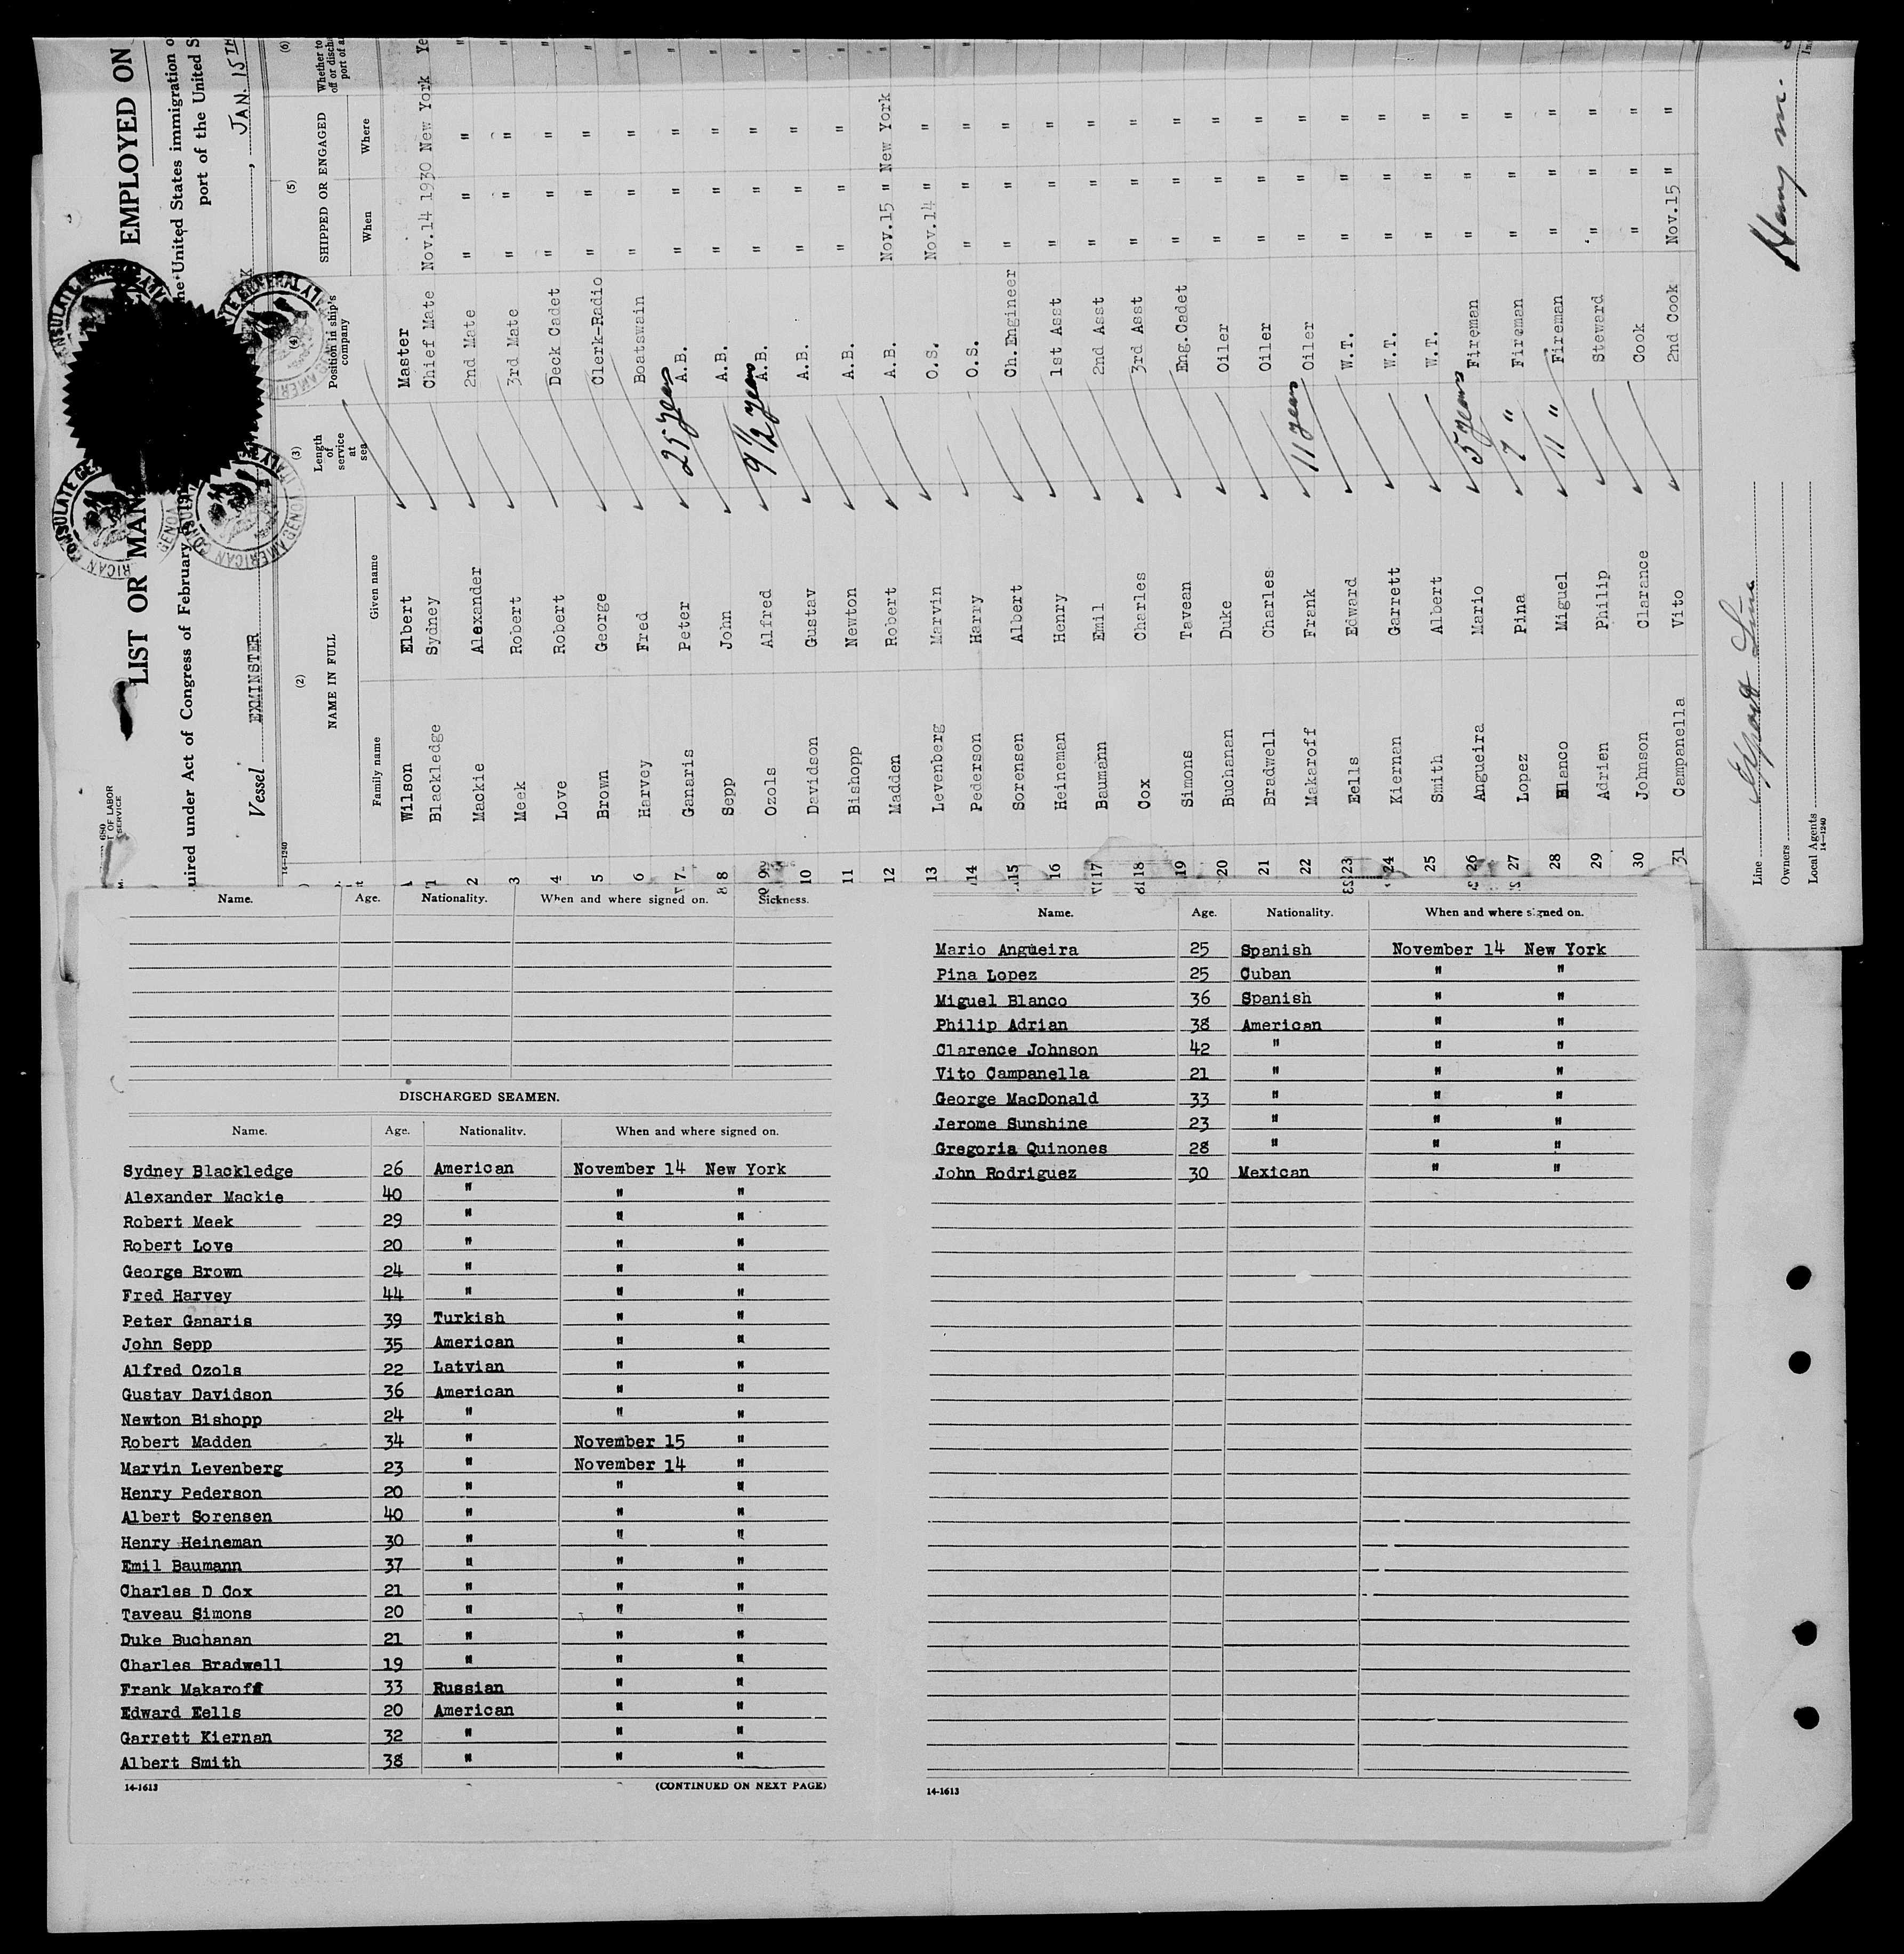 LIST OR MAN EMPLOYED ON
uired under Act of Congress of February he United States immigration o
port of the United S
Vessel EXMINSTER , JAN. 15TH
(2) (3) (4) (5) (6)
NAME IN FULL Length of service at sea Position in ship's company SHIPPED OR ENGAGED Whether to
Family name Given name When Where
Wilson Elbert Master
1 Blackledge Sydney Chief Mate Nov.14 1930 New York Ye
2 Mackie Alexander 2nd Mate " " " "
3 Meek Robert 3rd Mate " " " "
4 Love Robert Deck Cadet " " " "
5 Brown George Clerk-Radio " " " "
6 Harvey Fred Boatswain " " " "
7 Ganaris Peter 25 years A.B. " " " "
8 Sepp John A.B. " " " "
9 Ozols Alfred 9 1/2 years A.B. " " " "
10 Davidson Gustav A.B. " " " "
11 Bishopp Newton A.B. " " " "
12 Madden Robert A.B. Nov.15 " New York "
13 Levenberg Marvin O.S. Nov.14 " " "
14 Pederson Harry O.S. " " " "
15 Sorensen Albert Ch.Engineer " " "
16 Heineman Henry 1st Asst " " "
17 Baumann Emil 2nd Asst " " "
18 Cox Charles 3rd Asst " " "
19 Simons Tavean Eng.Cadet " " "
20 Buchanan Duke Oiler " " "
21 Bradwell Charles Oiler " " "
22 Makaroff Frank 11 years Oiler " " "
23 Eells Edward W.T. " " "
24 Kiernan Garrett W.T. " " "
25 Smith Albert W.T. " " "
26 Angueira Mario 5 years Fireman " " "
27 Lopez Pina 7 " Fireman " " "
28 Blanco Miguel 11 " Fireman " " "
29 Adrien Philip Steward " " "
30 Johnson Clarance Cook " " "
31 Campanella Vito 2nd Cook Nov.15 " "
Line Export Line
Owners
Local Agents
14-1240
Name. Age. Nationality. When and where signed on. Sickness.
DISCHARGED SEAMEN.
Name. Age. Nationality. When and where signed on.
Sydney Blackledge 26 American November 14 New York
Alexander Mackie 40 " " "
Robert Meek 29 " " "
Robert Love 20 " " "
George Brown 24 " " "
Fred Harvey 44 " " "
Peter Ganaris 39 Turkish " "
John Sepp 35 American " "
Alfred Ozols 22 Latvian " "
Gustav Davidson 36 American " "
Newton Bishopp 24 " " "
Robert Madden 34 " November 15 "
Marvin Levenberg 23 " November 14 "
Henry Pederson 20 " " "
Albert Sorensen 40 " " "
Henry Heineman 30 " " "
Emil Baumann 37 " " "
Charles D Cox 21 " " "
Taveau Simons 20 " " "
Duke Buchanan 21 " " "
Charles Bradwell 19 " " "
Frank Makaroff 33 Russian " "
Edward Eells 20 American " "
Garrett Kiernan 32 " " "
Albert Smith 38 " " "
14-1613 (CONTINUED ON NEXT PAGE)
Name. Age. Nationality. When and where signed on.
Mario Angueira 25 Spanish November 14 New York
Pina Lopez 25 Cuban " "
Miguel Blanco 36 Spanish " "
Philip Adrian 38 American " "
Clarence Johnson 42 " " "
Vito Campanella 21 " " "
George MacDonald 33 " " "
Jerome Sunshine 23 " " "
Gregoria Quinones 28 " " "
John Rodriguez 30 Mexican " "
14-1613